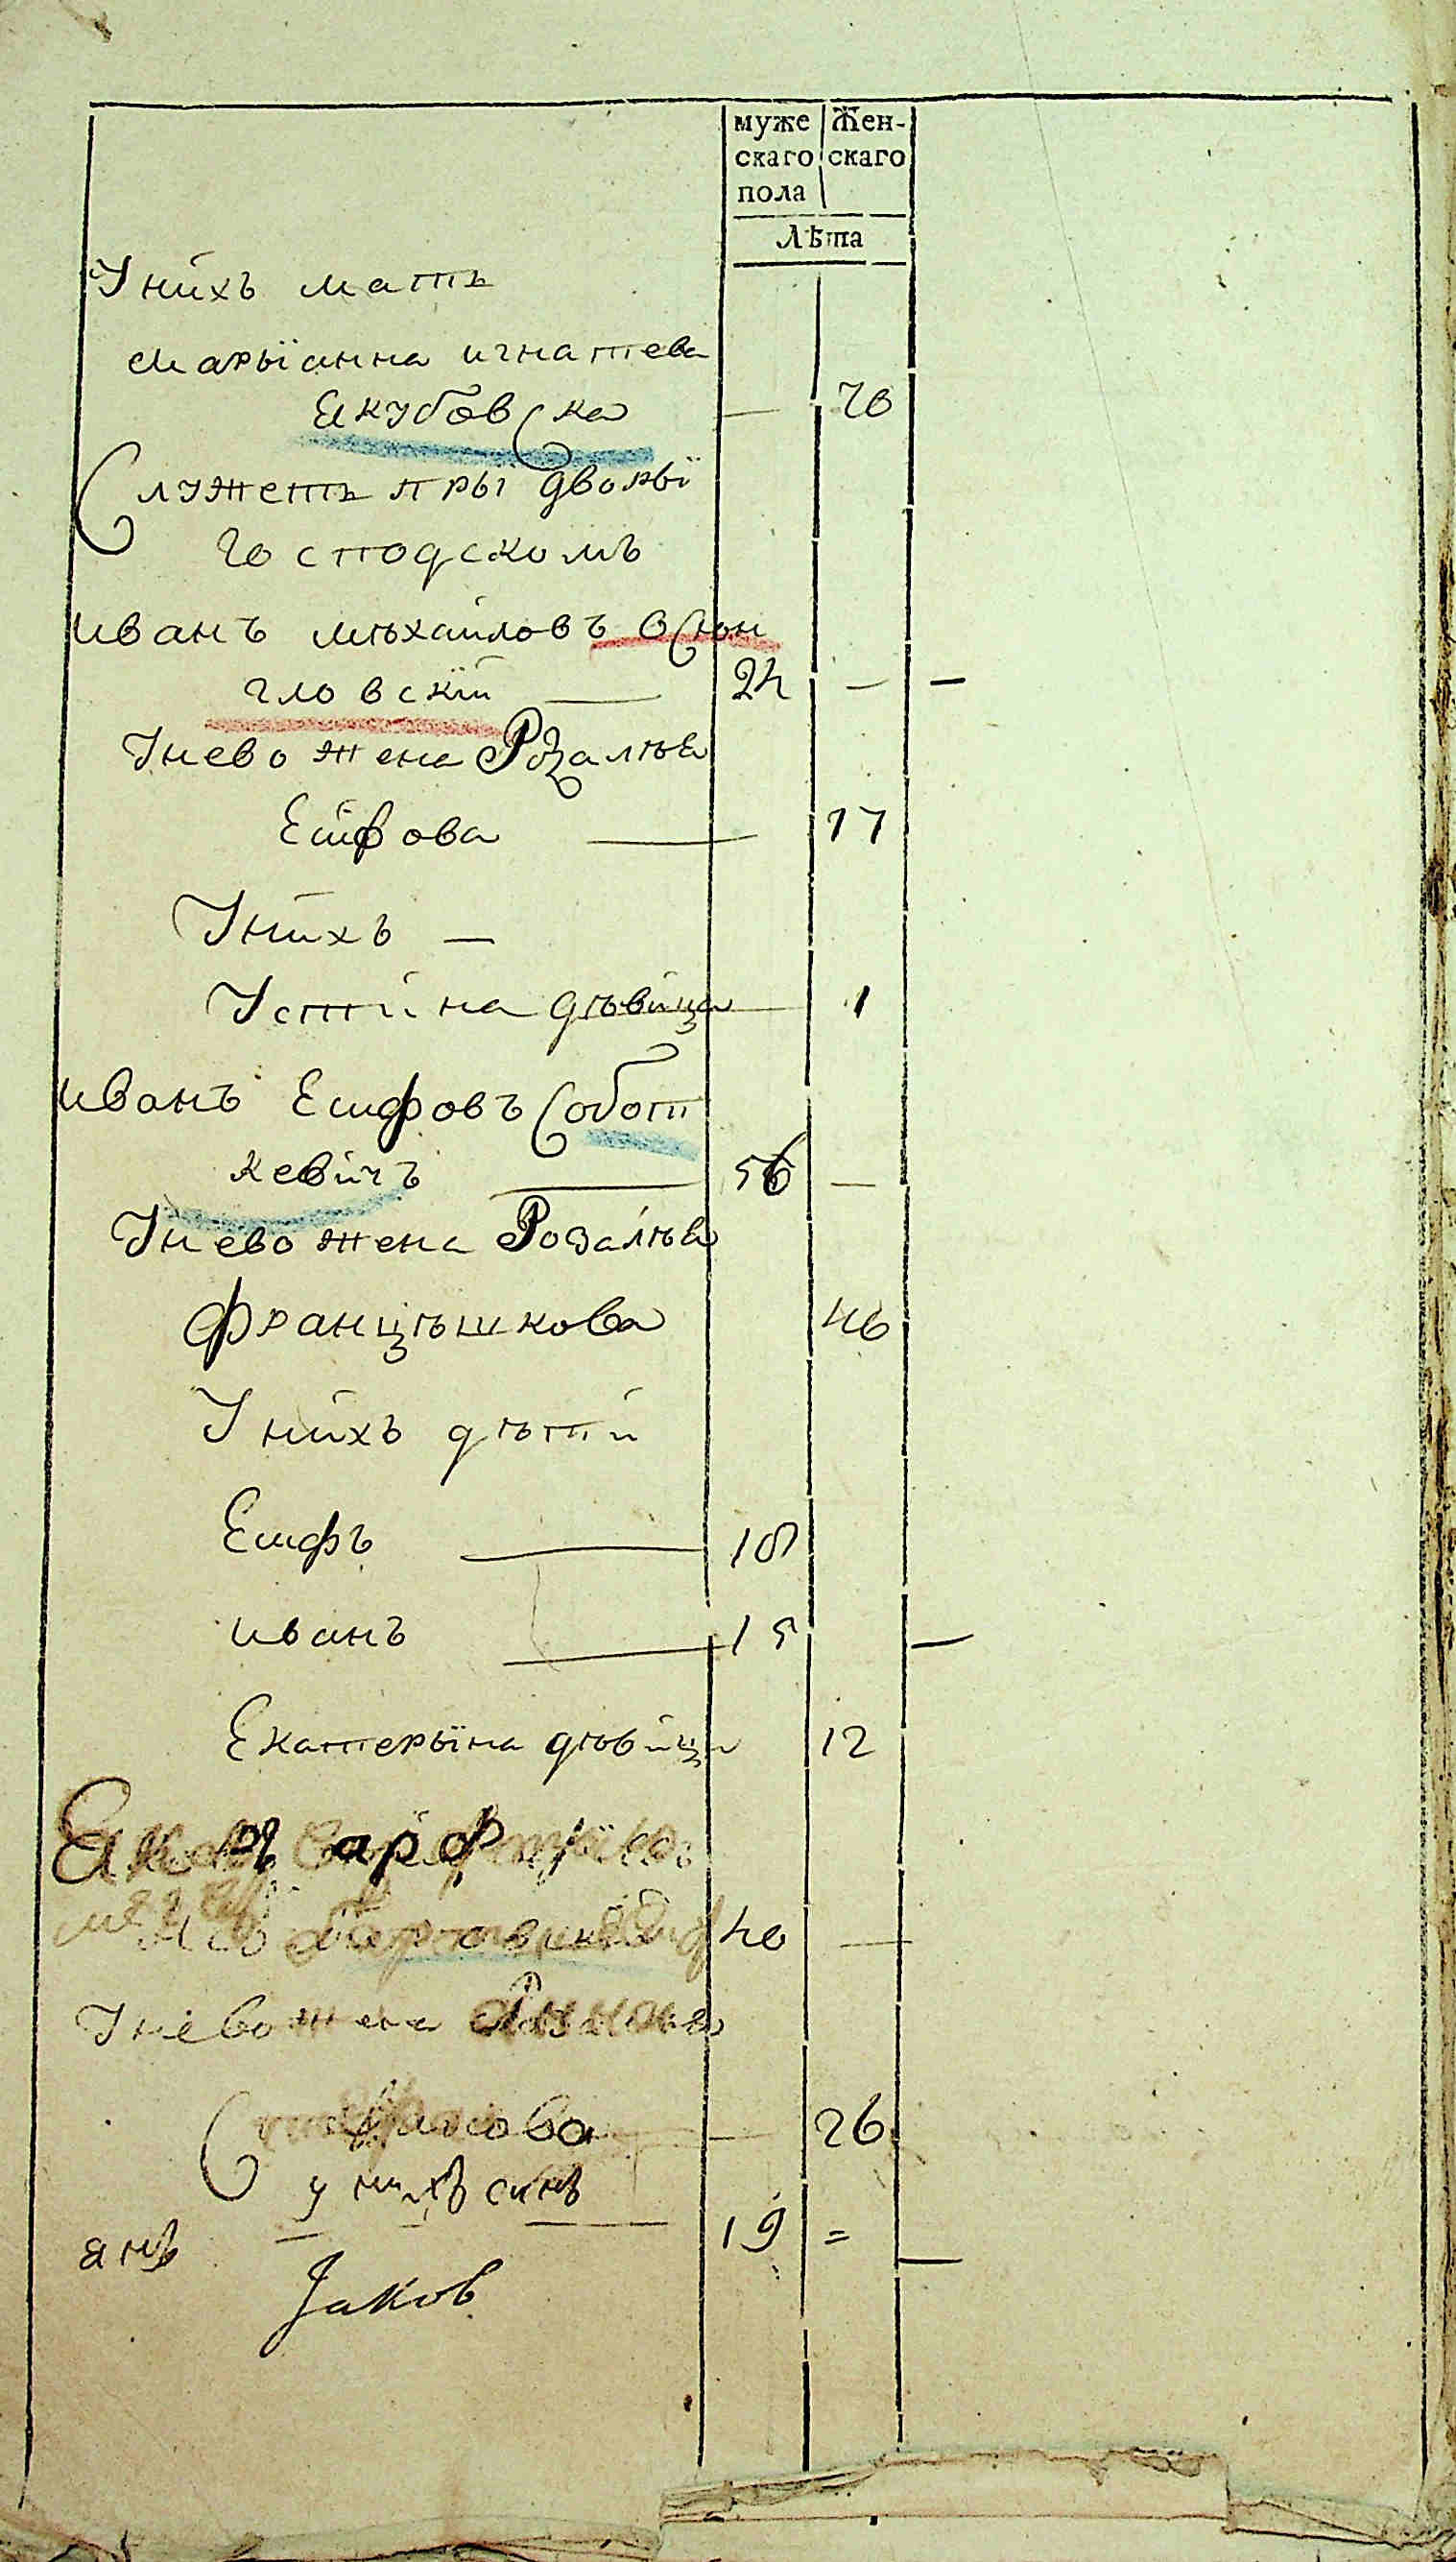 муже Жен-
скаго скаго
пола
Лѣта
Унихъ мать
Марыанна игнатева
Якубовска — 70
Служеть пры дворы
господскомъ
иванъ мѣхаиловъ Осмон
гловскій — 24 — —
Унево жена Розалѣя
Еѿифова — 17
Унихъ —
Устина дѣвица — 1
иванъ Еѿифовъ Собот
кевичъ — 56 —
Унево жена Розалѣя
Францѣшкова 46
Унихъ дѣти
Еѿифъ — 18
иванъ — 15 —
Екатерына дѣвица 12
Яковъ
40 —
Унево жена
— 26
у нихъ синъ
янъ — 19 = —
Jakob